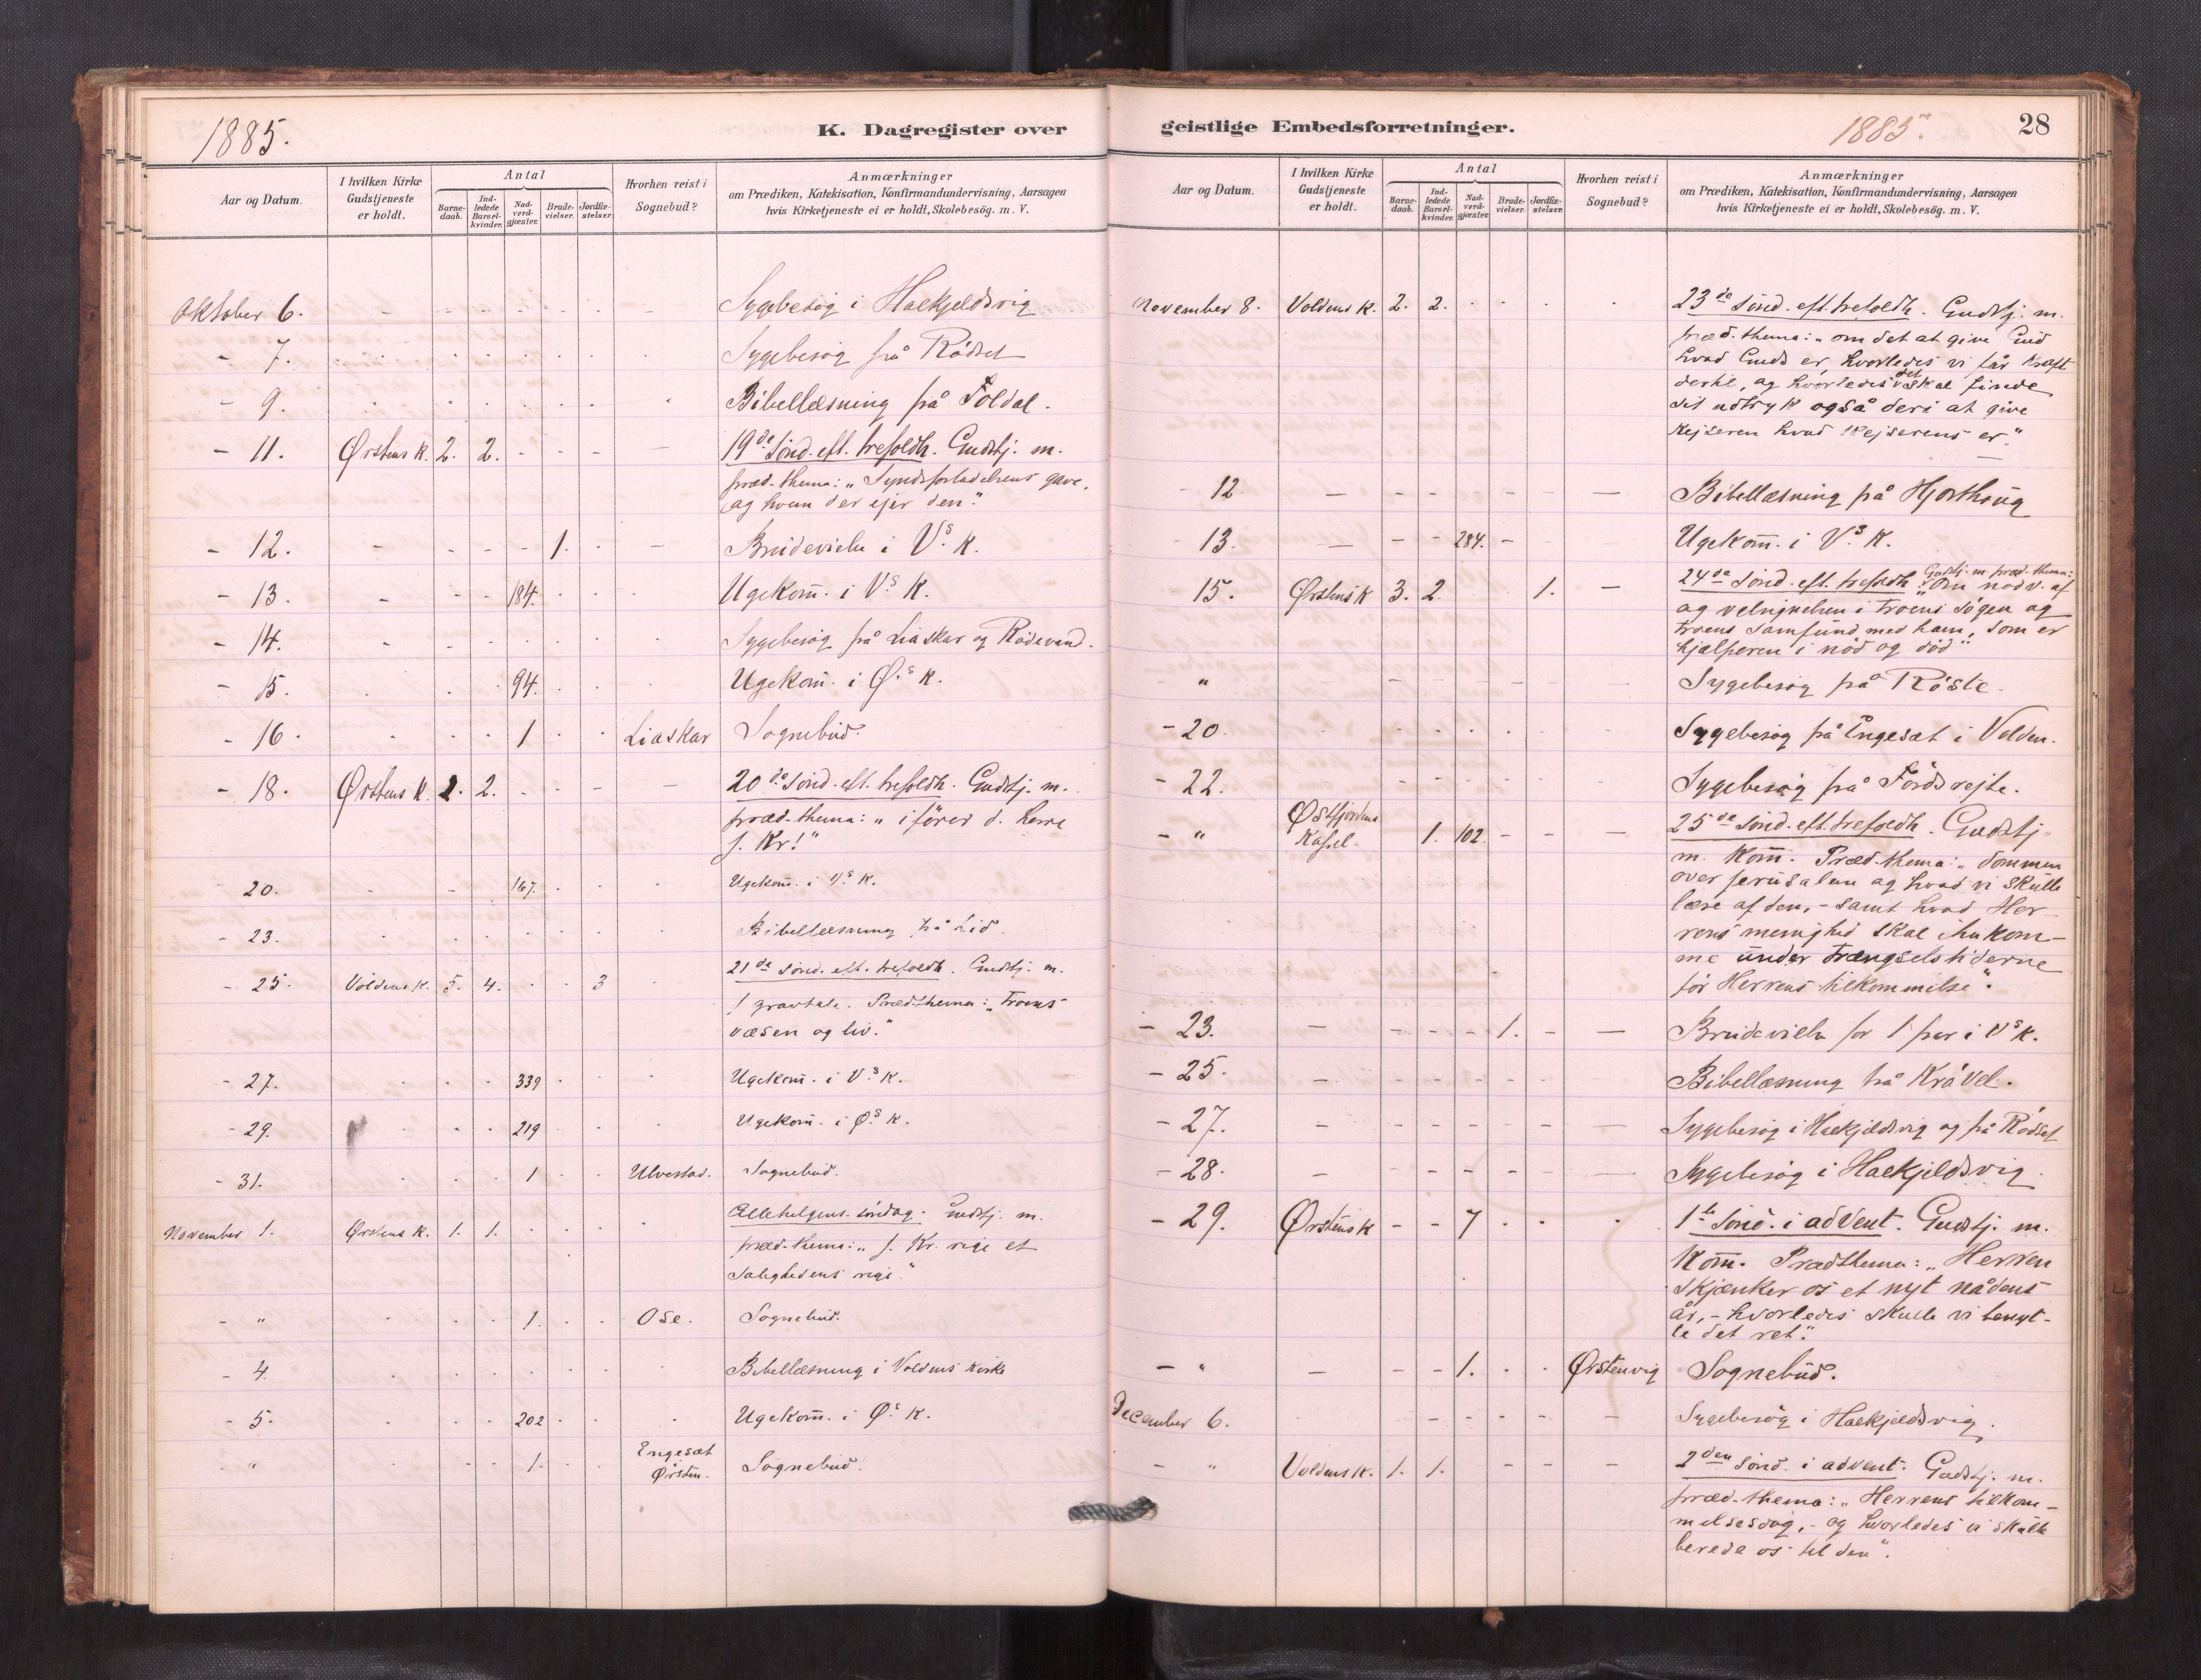 1885.
K. Dagregister over
Aar og Datum.
I hvilken Kirke Gudstjeneste er holdt.
Antal
Barne-daab.
Ind-ledede Barsel-kvinder.
Nad-verd-gjæster.
Brude-vielser.
Jordfæ-stelser.
Hvorhen reist i Sognebud?
Anmærkninger
om Prædiken, Katekisation, Konfirmandundervisning, Aarsagen
hvis Kirketjeneste ei er holdt, Skolebesög. m. V.
Oktober 6. Sygebesøg i Halkjeldsvig
- 7. Sygebesøg på Rødset
- 9. Bibellæsning på Foldal.
- 11. Ørstens K. 2. 2. 19de sønd. eft. trefoldh. Gudstj. m.
præd-thema: „Syndsforladelsens gave,
og hvem der ejer den."
- 12. 1. Brudevielse i V.s K.
- 13. 184. Ugekom̄. i V.s K.
- 14. Sygebesøg på Liaskar og Rødevand.
- 15. 94. Ugekom̄. i Ø.s K.
- 16. 1 Liaskar Sognebud.
- 18. Ørstens K. 2. 2. 20de sønd. eft. trefoldh. Gudstj. m.
præd-thema: „iføres d. herre
J. Kr!"
20. 167. Ugekom̄. i V.s K.
- 23. Bibellæsning på Lid.
- 25. Voldens K. 5. 4. 3 21de sønd. eft. trefoldh. Gudstj. m.
1 gravtale. Præd-thema: „Troens
væsen og liv."
- 27. 339 Ugekom̄. i V.s K.
- 29. 219 Ugekom̄. i Ø.s K.
- 31. 1 Ulvestad. Sognebud.
November 1. Ørstens K. 1. 1. Allehelgens-søndag. Gudstj. m.
præd-thema: „J. Kr. rige et
salighedens rige."
- " 1. Ose. Sognebud.
- 4. Bibellæsning i Voldens kirke
- 5. 202 Ugekom̄. i Ø.s K.
- " 1. Engesæt Ørsten. Sognebud.
geistlige Embedsforretninger.
1885.
28
Aar og Datum.
I hvilken Kirke Gudstjeneste er holdt.
Antal
Barne-daab.
Ind-ledede Barsel-kvinder.
Nad-verd-gjæster.
Brude-vielser.
Jordfæ-stelser.
Hvorhen reist i Sognebud?
Anmærkninger
om Prædiken, Katekisation, Konfirmandundervisning, Aarsagen
hvis Kirketjeneste ei er holdt, Skolebesög. m. V.
November 8. Voldens K. 2. 2. 23de sønd. eft. trefoldh. Gudstj. m.
præd-thema: „om det at give Gud
hvad Guds er, hvorledes vi får kraft
dertil, og hvorledes det skal finde
sit udtryk også deri at give
Kejseren hvad Kejserens er."
- 12 Bibellæsning på Hjorthoug
- 13. 284. Ugekom̄. i V.s K.
15. Ørstens K 3. 2 1. 24de sønd. eft. trefoldh. Gudstj. m præd-thema:
„Om nødv. af
og velsignelsen i troens søgen og
troens samfund med ham, som er
hjælperen i nød og død"
" Sygebesøg på Røste.
- 20. Sygebesøg på Engesæt i Volden.
- 22. Sygebesøg på
- " Østfjordens Kapel. 1. 102. 25de sønd. eft. trefoldh. Gudstj
m. Kom̄. Præd-thema: „dommen
over Jerusalem og hvad vi skulle
lære af den, - samt hvad Her-
rens menighed skal ihukom-
me under trængselstiderne
før Herrens tilkommelse".
- 23. 1. Brudevielse for 1 par i V.s K.
- 25. Bibellæsning på Krøvel.
- 27. Sygebesøg i Halkjeldsvig og på Rødset
- 28. Sygebesøg i Halkjeldsvig.
- 29. Ørstens K 7 1ste sønd. i advent. Gudstj. m.
Kom̄. Prædthema: „Herren
skjænker os et nyt nådens
år, - hvorledes skulle vi benyt-
te det ret".
- " 1. Ørstenvig Sognebud.
December 6. Sygebesøg i Halkjeldsvig.
- " Voldens K. 1. 1. 2den sønd. i advent. Gudstj. m.
præd-thema: „Herrens tilkom-
melsesdag, - og hvorledes vi skulle
berede os til den".